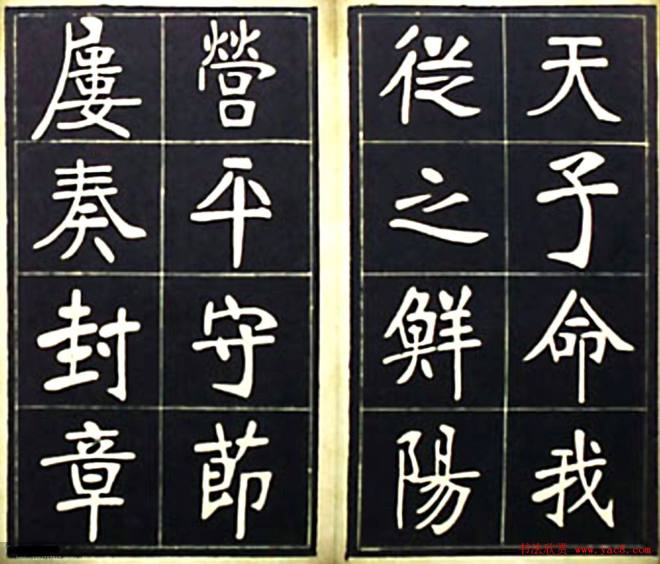 天子命我
從之鮮陽
營平守節
屢奏封章
书法欣赏 www.yac8.com